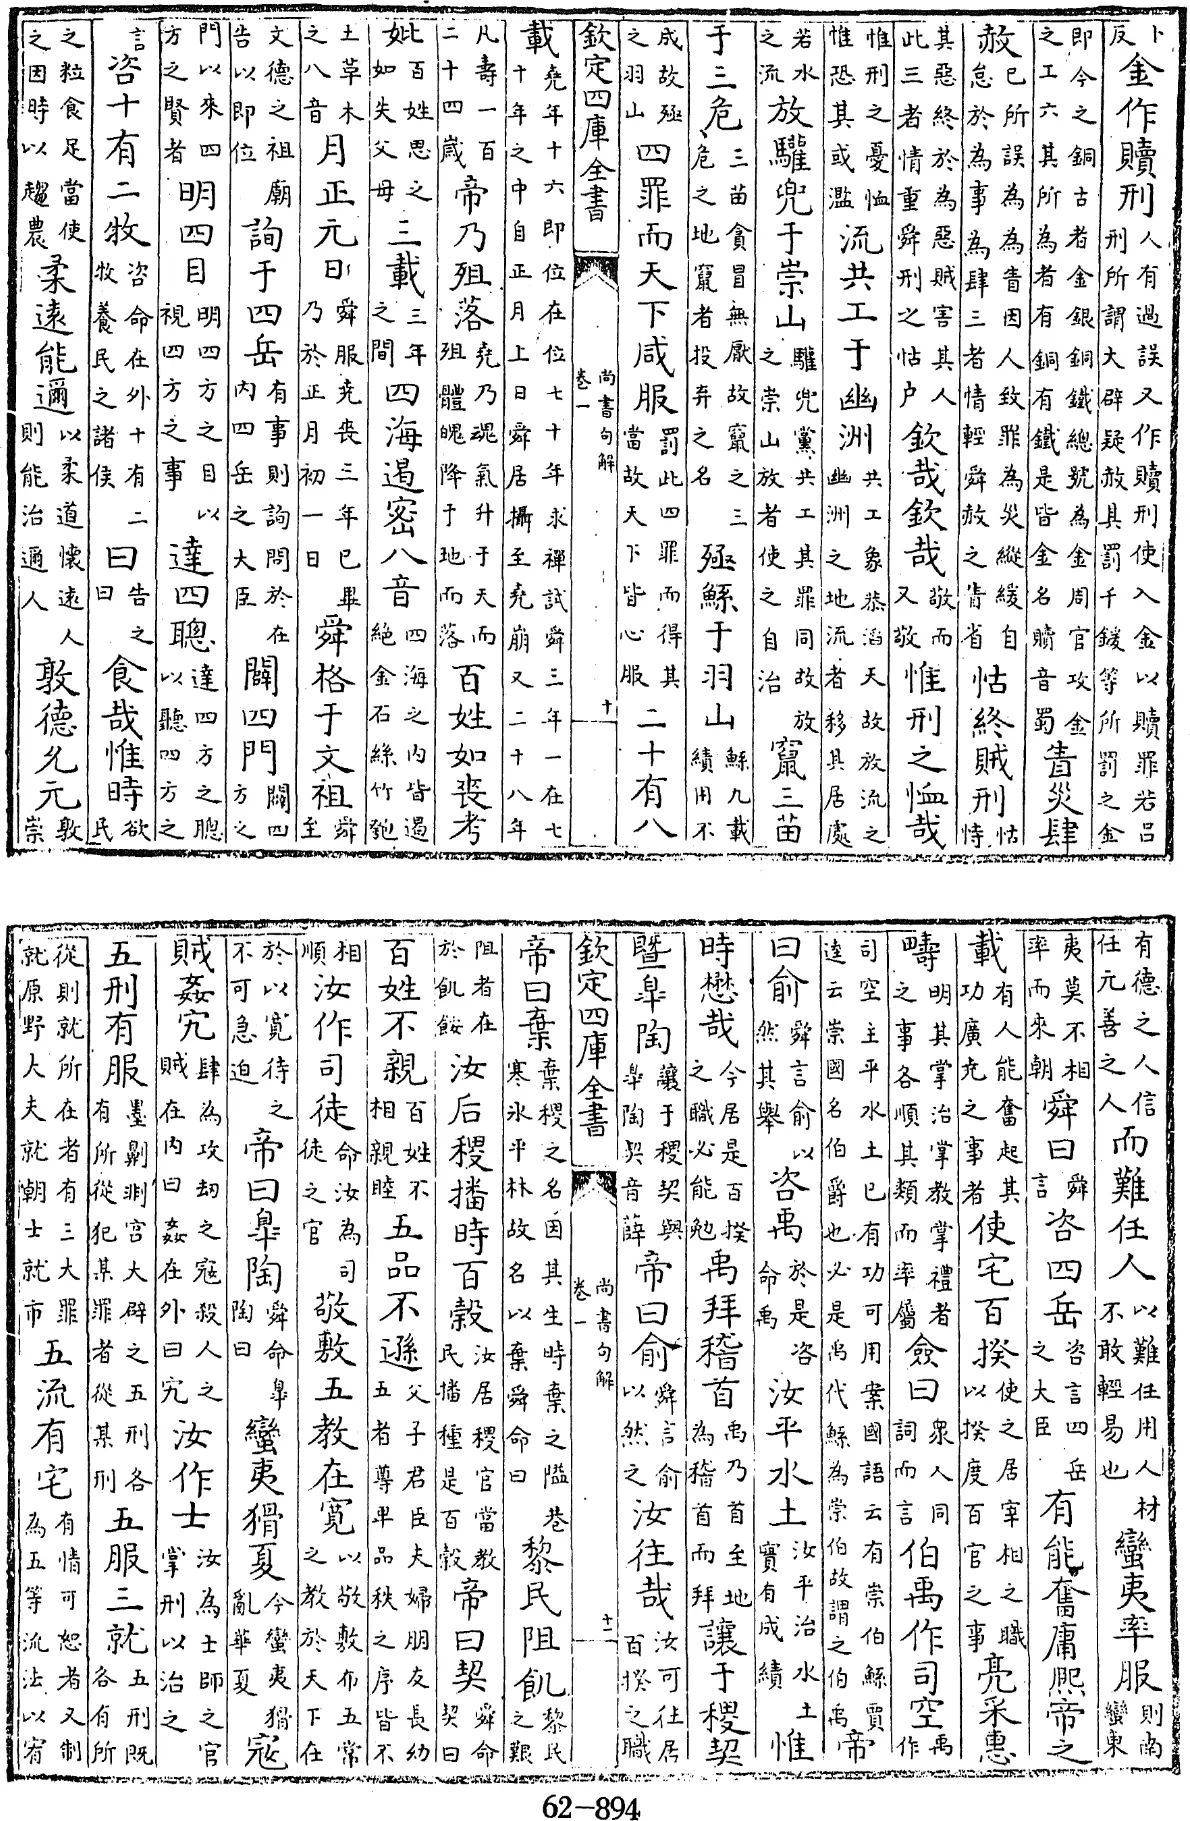 卜反金作贖刑人有過誤又作贖刑使入金以贖罪若吕刑所謂大辟疑赦其罰千鍰等所罰之金
即今之銅古者金銀銅鐵總號為金周官攻金之工六其所為者有銅有鐵是皆金名贖音蜀眚災肆
赦已所誤為為眚因人致罪為災縱緩自怠於為事為肆三者情輕舜赦之眚省怙終賊刑怙恃
其惡終於為惡賊害其人此三者情重舜刑之怙户欽哉欽哉敬而又敬惟刑之恤哉
惟刑之憂恤惟恐其或濫流共工于幽洲共工象恭滔天故放流之幽洲之地流者移其居處
若水之流放驩兜于崇山驩兜黨共工其罪同故放之崇山放者使之自治竄三苗
于三危三苗貪冒無厭故竄之三危之地竄者投弃之名殛鯀于羽山鯀九載績用不
成故殛之羽山四罪而天下咸服罰此四罪而得其當故天下皆心服二十有八
欽定四庫全書 尚書句解卷一 十
載堯年十六即位在位七十年求禪試舜三年一在七十年之中自正月上日舜居攝至堯崩又二十八年
凡壽一百二十四歲帝乃殂落堯乃魂氣升于天而殂體魄降于地而落百姓如喪考
妣百姓思之如失父母三載三年之間四海遏密八音四海之内皆遏絶金石絲竹匏
土草木之八音月正元日舜服堯喪三年已畢乃於正月初一日舜格于文祖舜至
文德之祖廟告以即位詢于四岳有事則詢問於在内四岳之大臣闢四門闢四方之
門以來四方之賢者明四目明四方之目以視四方之事達四聰達四方之聰以聽四方之
言咨十有二牧咨命在外十有二牧養民之諸侯曰告之曰食哉惟時欲民
之粒食足當使之因時以趨農柔遠能邇以柔道懷遠人則能治邇人敦德允元敦崇
有德之人信任元善之人而難任人以難任用人材不敢輕易也蠻夷率服則南蠻東
夷莫不相率而來朝舜曰舜言咨四岳咨言四岳之大臣有能奮庸熙帝之
載有人能奮起其功廣充之事者使宅百揆使之居宰相之職以揆度百官之事亮采惠
疇明其掌治掌教掌禮者之事各順其類而率屬僉曰衆人同詞而言伯禹作司空禹作
司空主平水土已有功可用案國語云有崇伯鯀賈逵云崇國名伯爵也必是禹代鯀為崇伯故謂之伯禹帝
曰俞舜言俞以然其舉咨禹於是咨命禹汝平水土汝平治水土實有成績惟
時懋哉今居是百揆之職必能勉禹拜稽首禹乃首至地為稽首而拜讓于稷契
暨皋陶讓于稷契與皋陶契音薛帝曰俞舜言俞以然之汝往哉汝可往居百揆之職
欽定四庫全書 尚書句解卷一 十一
帝曰棄棄稷之名因其生時棄之隘巷寒氷平林故名以棄舜命曰黎民阻飢黎民之艱
阻者在於飢餒汝后稷播時百穀汝居稷官當教民播種是百穀帝曰契舜命契曰
百姓不親百姓不相親睦五品不遜父子君臣夫婦朋友長幼五者尊卑品秩之序皆不
相順汝作司徒命汝為司徒之官敬敷五教在寛以敬敷布五常之教於天下在
於以寛待之不可急迫帝曰皋陶舜命皋陶曰蠻夷猾夏今蠻夷猾亂華夏寇
賊姦宄肆為攻刼之寇殺人之賊在内曰姦在外曰宄汝作士汝為士師之官掌刑以治之
五刑有服墨劓剕宫大辟之五刑各有所從犯某罪者從某刑五服三就五刑既各有所
從則就所在者有三大罪就原野大夫就朝士就市五流有宅有情可恕者又制為五等流法以宥
62-894